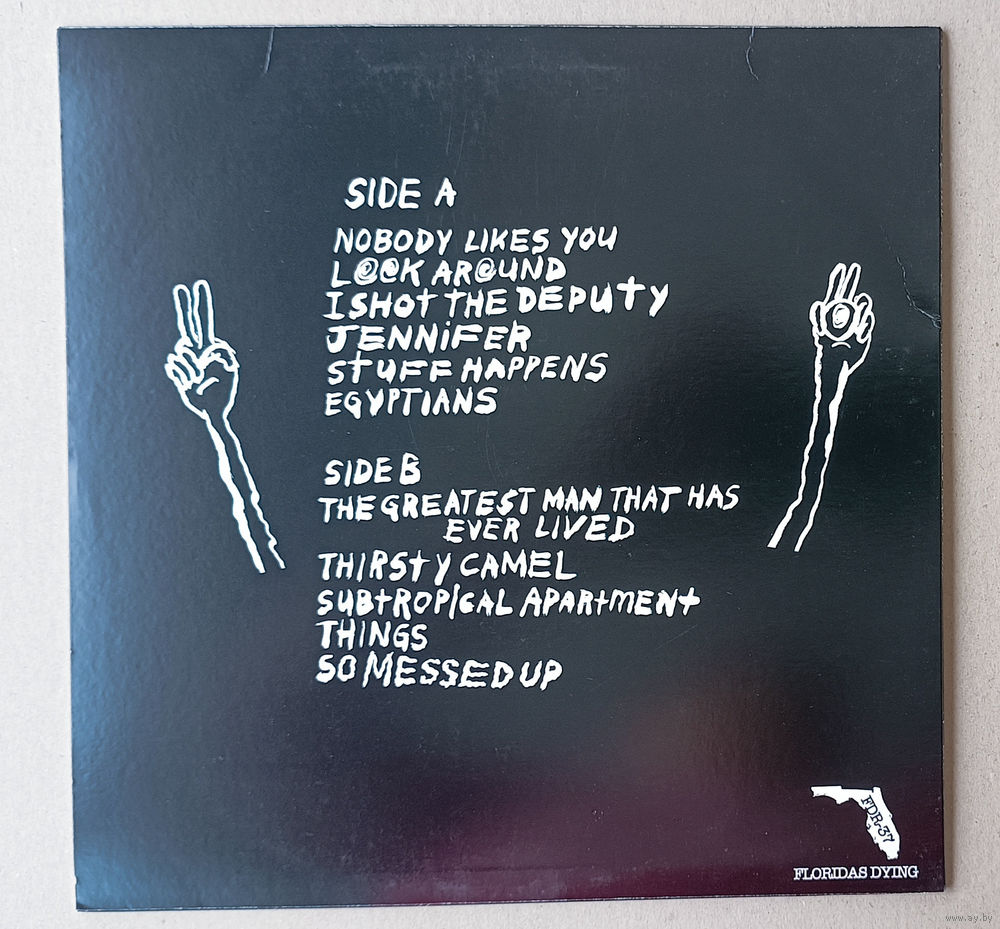 SIDE A
NOBODY LIKES YOU
L@@K AR@UND
I SHOT THE DEPUTY
JENNiFER
StUFF HAPPENS
EGYPTIANS
SIDE B
THE GREATEST MAN THAT HAS
EVER LIVED
THIRStY CAMEL
SUBtROPICAL APARtMENt
THINGS
SO MESSED UP
FDR-37
FLORIDAS DYING
www.ay.by